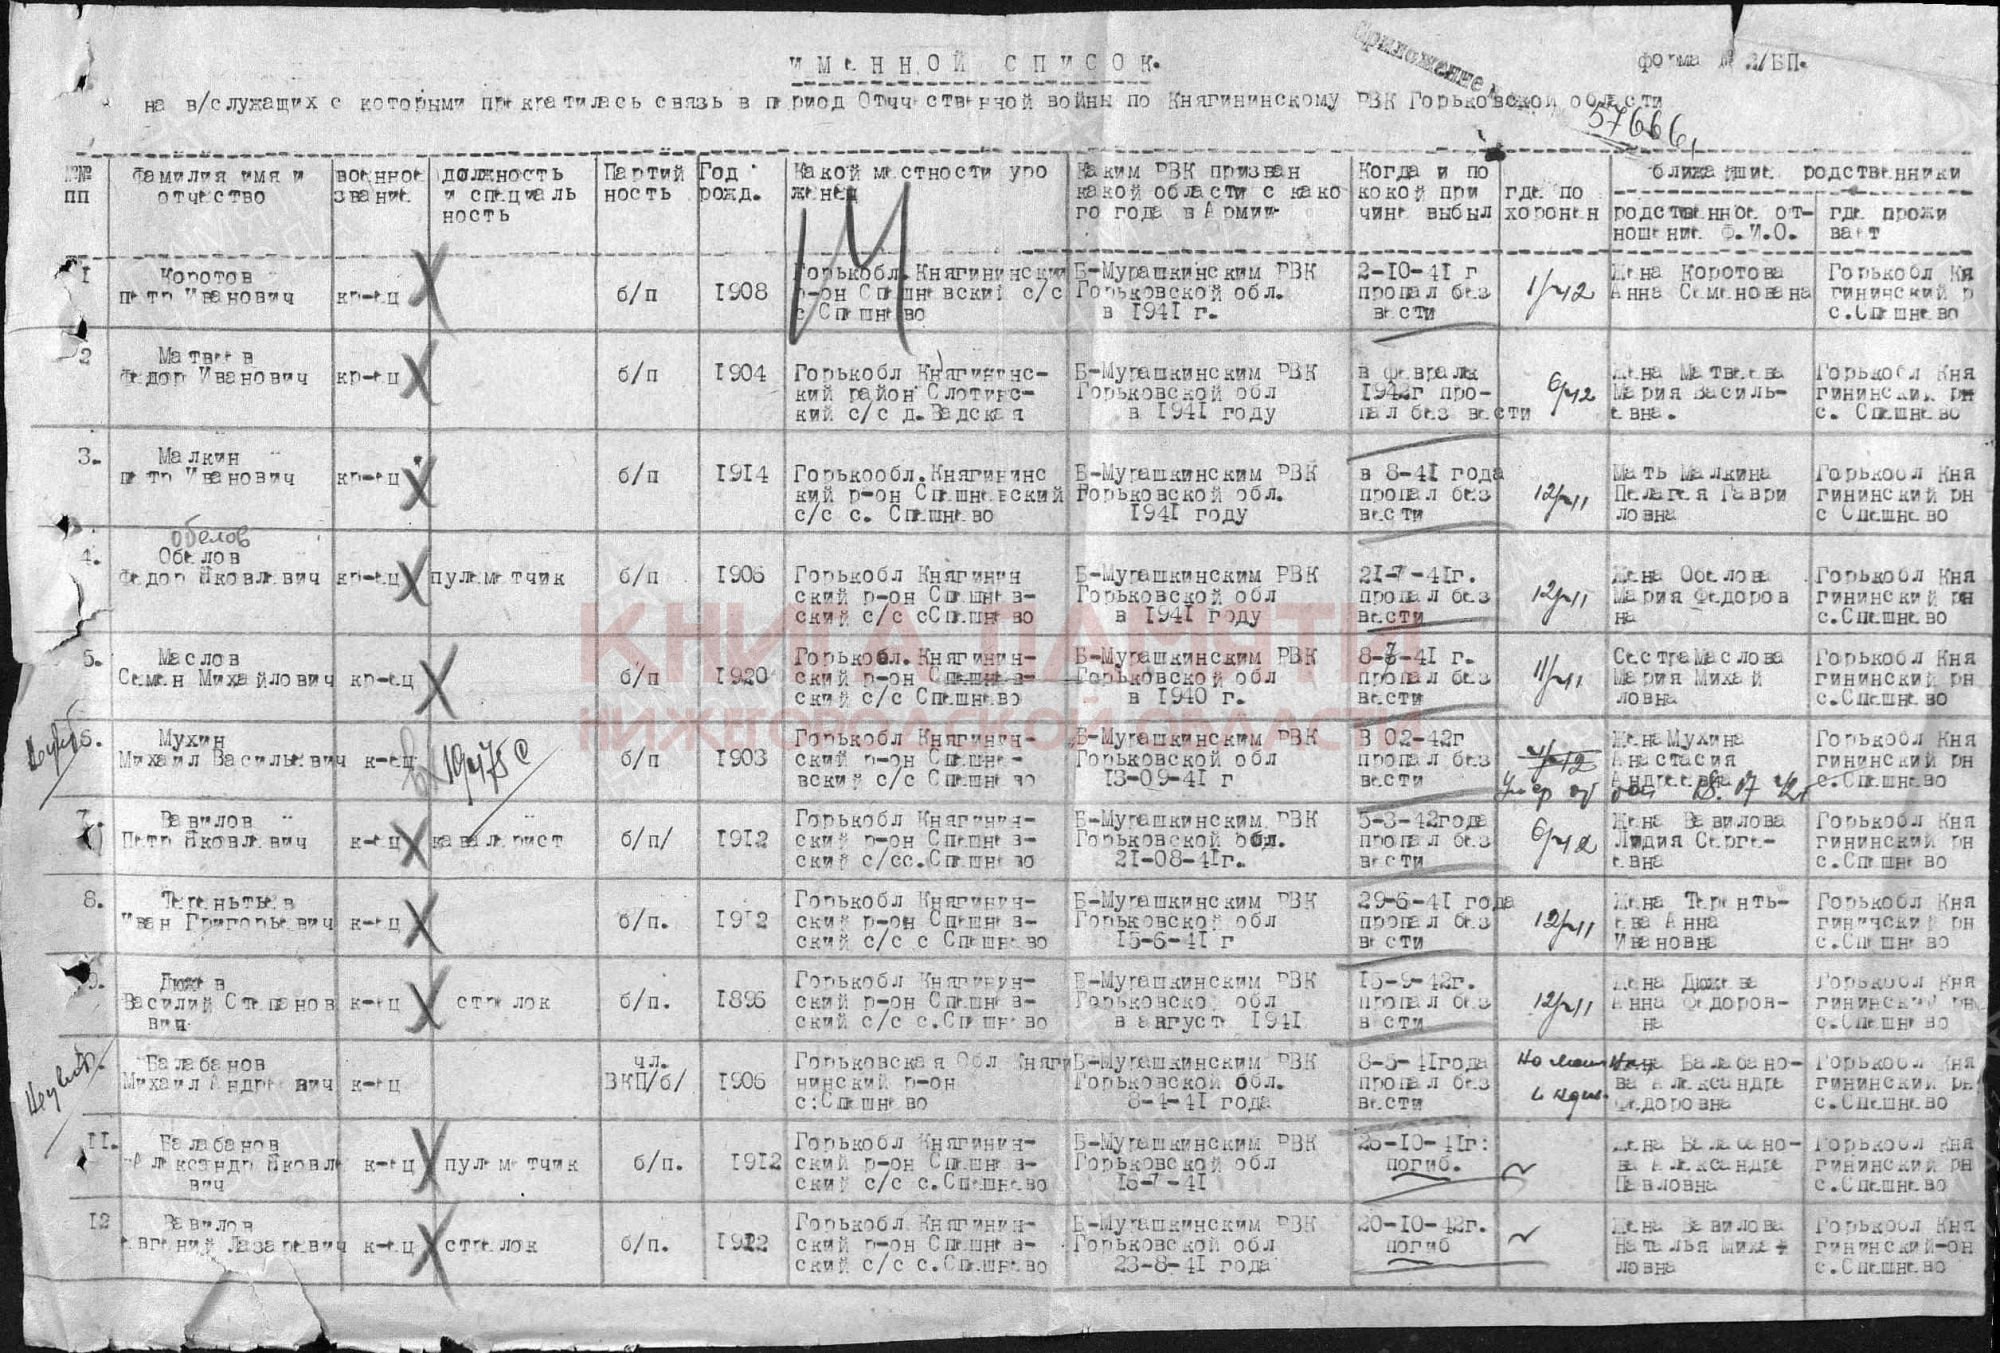 ИМЕННОЙ СПИСОК.
Приложение
форма № 2/БП.
на в/служащих с которыми прекратилась связь в период Отечественной войны по Княгининскому РВК Горьковской области
57666
№№ пп | фамилия имя и отчество | военное звание | должность и специаль ность | Партий ность | Год рожд. | Какой местности уро женец | Каким РВК призван какой области с како го года в Армии- | Когда и по кокой при чине выбыл | где по хоронен | ближайшие родственники
родственное от-ношение Ф.И.О. | где прожи вает
1 | Коротов петр Иванович | кр-ец | б/п | 1908 | Горькобл.Княгининский р-он Спешневский с/с с Спешнево | Б-Мурашкинским РВК Горьковской обл. в 1941 г. | 2-10-41 г пропал без вести | 1/м42 | Жена Коротова Анна Семенована | Горькобл Кня гининский р с.Спешнево
2 | Матвеев Федор Иванович | кр-ец | б/п | 1904 | Горькобл Княгининс-кий район Слотинс-кий с/с д.Вадская | Б-Мурашкинским РВК Горьковской обл в 1941 году | в феврале 1942г про-пал без вести | 6/м42 | Жена Матвеева Мария Василь-евна. | Горькобл Кня гининский рн с. Спешнево
3. | Малкин петр Иванович | кр-ец | б/п | 1914 | Горькообл.Княгининс кий р-он Спешневский с/с с. Спешнево | Б-Мурашкинским РВК Горьковской обл. 1941 году | в 8-41 года пропал без вести | 12/м11 | Мать Малкина Пелагея Гаври ловна | Горькобл Кня гининский рн с Спешнево
обелов
4. | Обелов Федор Яковлевич | кр-ец | пулеметчик | б/п | 1906 | Горькобл Княгинин ский р-он Спешнев-ский с/с сСпешнево | Б-Мурашкинским РВК Горьковской обл в 1941 году | 21-7-41г. пропал без вести | 12/м11 | Жена Обелова Мария Федоров на | Горькобл Кня гининский рн с.Спешнево
5. | Маслов Семен Михайлович | кр-ец | б/п | 1920 | Горькобл.Княгинин-ский р-он Спешнев-ский с/с Спешнево | Б-Мурашкинским РВК Горьковской обл в 1940 г. | 8-7-41 г. пропал без вести | 11/м11 | СестраМаслова Мария Михай ловна | Горькобл Кня гининский рн с.Спешнево
6. | Мухин Михаил Васильевич | к-ец | 19475с | б/п | 1903 | Горькобл Княгинин-ский р-он Спешне-вский с/с Спешнево | Б-Мурашкинским РВК Горьковской обл 13-09-41 г | В 02-42г пропал без вести | ЖенаМухина Анастасия Андреевна | Горькобл Кня гининский рн с.Спешнево
Умер от ран 18.07 42г
7. | Вавилов Петр Яковлевич | к-ец | кавалерист | б/п/ | 1912 | Горькобл Княгинин-ский р-он Спешнев-ский с/сс.Спешнево | Б-Мурашкинским РВК Горьковской обл. 21-08-41г. | 5-3-42года пропал без вести | 6/м42 | Жена Вавилова Лидия Серге-евна | Горькобл Кня гининский рн с.Спешнево
8. | Терентьев Иван Григорьевич | к-ец | б/п. | 1912 | Горькобл Княгинин-ский р-он Спешнев-ский с/с с Спешнево | Б-Мурашкинским РВК Горьковской обл 15-6-41 г | 29-6-41 года пропал без вести | 12/м11 | Жена Теренть-ева Анна Ивановна | Горькобл Кня гининский рн с.Спешнево
9. | Дюжев Василий Степанов вич | к-ец | стрелок | б/п. | 1896 | Горькобл Княгинин-ский р-он Спешнев-ский с/с с.Спешнево | Б-Мурашкинским РВК Горьковской обл в августе 1941 | 15-9-42г. пропал без вести | 12/м11 | Жена Дюжева Анна Федоров-на | Горькобл Кня гининский рн с.Спешнево
10. | Балабанов Михаил Андреевич | к-ец | чл. ВКП/б/ | 1906 | Горьковская Обл Княги нинский р-он с:Спешнево | Б-Мурашкинским РВК Горьковской обл. 8-4-41 года | 8-5-41года пропал без вести | Жена Балабано-ва Александра Федоровна | Горькобл Кня гининский рн с.Спешнево
11. | Балабанов Александр Яковле вич | к-ец | пулеметчик | б/п. | 1912 | Горькобл Княгинин-ский р-он Спешнев-ский с/с с.Спешнево | Б-Мурашкинским РВК Горьковской обл 16-7-41 | 26-10-41г: погиб. | Жена Балабано-ва Александра Павловна | Горькобл Кня гининский рн с.Спешнево
12 | Вавилов Евгений Лазаревич | к-ец | стрелок | б/п. | 1912 | Горькобл Княгинин-ский р-он Спешнев-ский с/с с.Спешнево | Б-Мурашкинским РВК Горьковской обл 23-8-41 года | 20-10-42г. погиб | Жена Вавилова Наталья Михай ловна | Горькобл Кня гининский-он с.Спешнево
КНИГА ПАМЯТИ
НИЖЕГОРОДСКОЙ ОБЛАСТИ